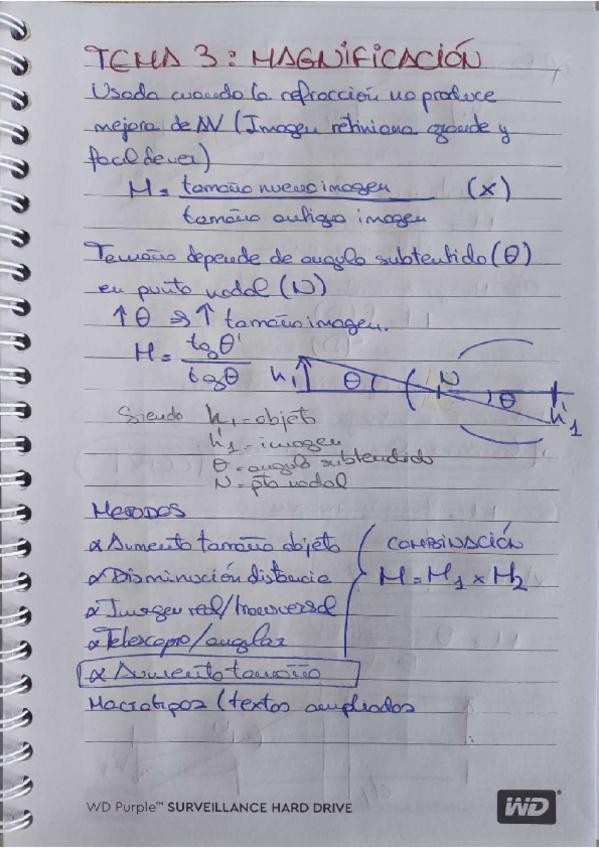 TEMA 3: MAGNIFICACIÓN
Usada cuando la refracción no produce
mejora de AV (Imagen retiniana grande y
facil de ver)
M = tamaño nueva imagen (x)
tamaño antigua imagen
Tamaño depende de angulo subtentido (θ)
en punto nodal (N)
↑ θ ⇒ ↑ tamaño imagen.
M = tgθ'
tgθ
h1 θ N θ h'1
Siendo h1 = objeto
h'1 = imagen
θ = angulo subtendido
N = pto nodal
METODOS
α Aumento tamaño objeto
α Disminución distancia
α Imagen real/transversal
α Telescopio/angular
COMBINACIÓN
M = M1 x M2
α Aumento tamaño
Macrotipos (textos ampliados
WD Purple™ SURVEILLANCE HARD DRIVE
WD